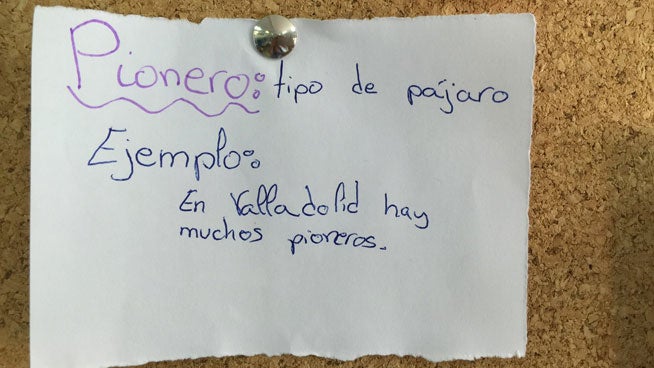 Pionero: tipo de pájaro
Ejemplo:
En Valladolid hay
muchos pioneros.